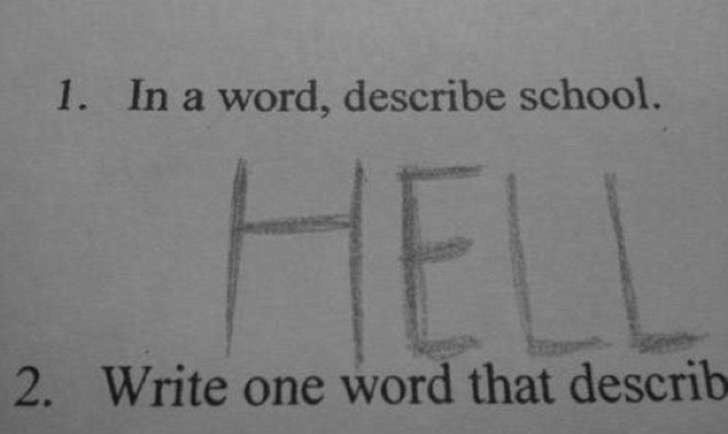 1. In a word, describe school.
HELL
2. Write one word that describ